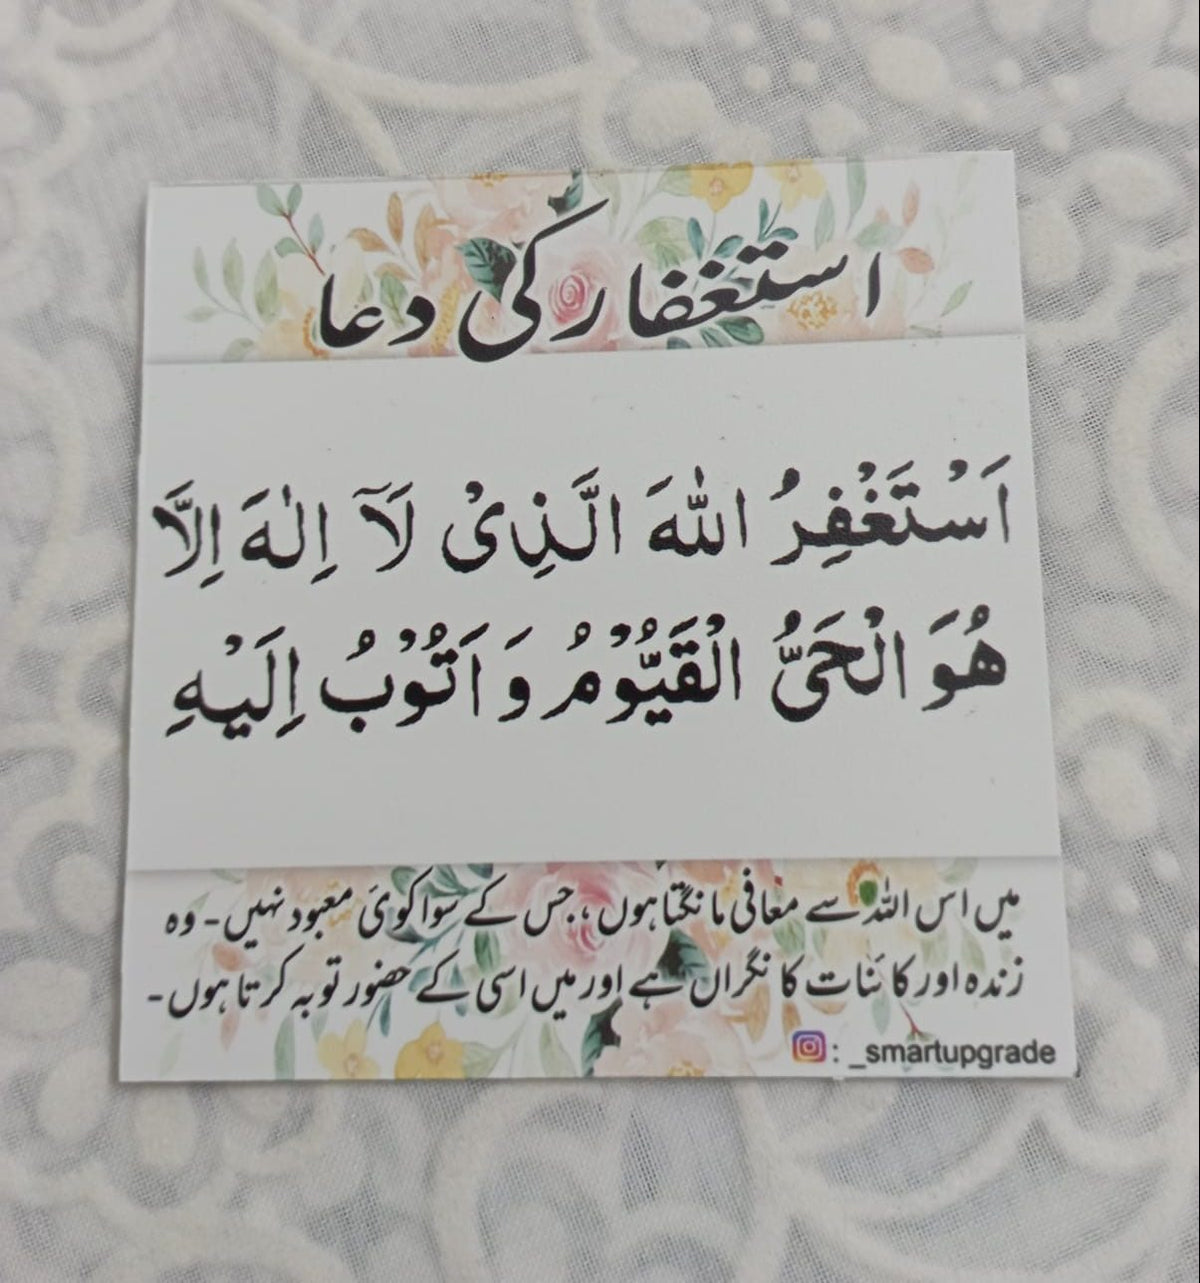 استغفار کی دعا
اَسْتَغْفِرُ اللّٰهَ الَّذِیْ لَآ اِلٰهَ اِلَّا
هُوَ الْحَیُّ الْقَیُّوْمُ وَ اَتُوْبُ اِلَیْهِ
میں اس اللہ سے معافی مانگتا ہوں، جس کے سوا کوئ معبود نہیں۔ وہ
زندہ اور کائنات کا نگراں ہے اور میں اسی کے حضور توبہ کرتا ہوں۔
: _smartupgrade